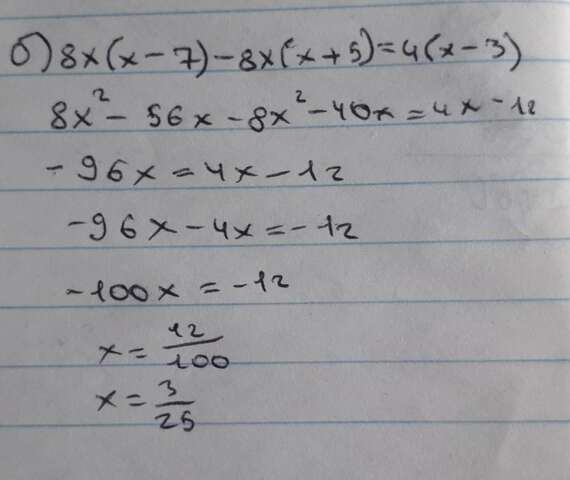 б) 8x(x-7)-8x(x+5)=4(x-3)
8x²-56x-8x²-40x=4x-12
-96x=4x-12
-96x-4x=-12
-100x=-12
x=12/100
x=3/25